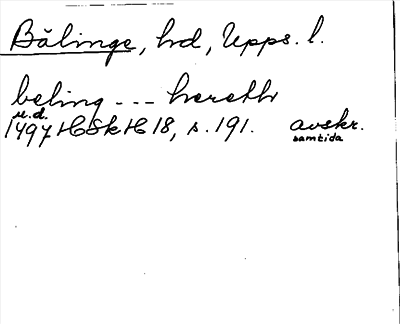 Bälinge, hd, Upps. l.
beling --- hereth
u.d.
1497 HSkH 18, s. 191. avskr.
samtida